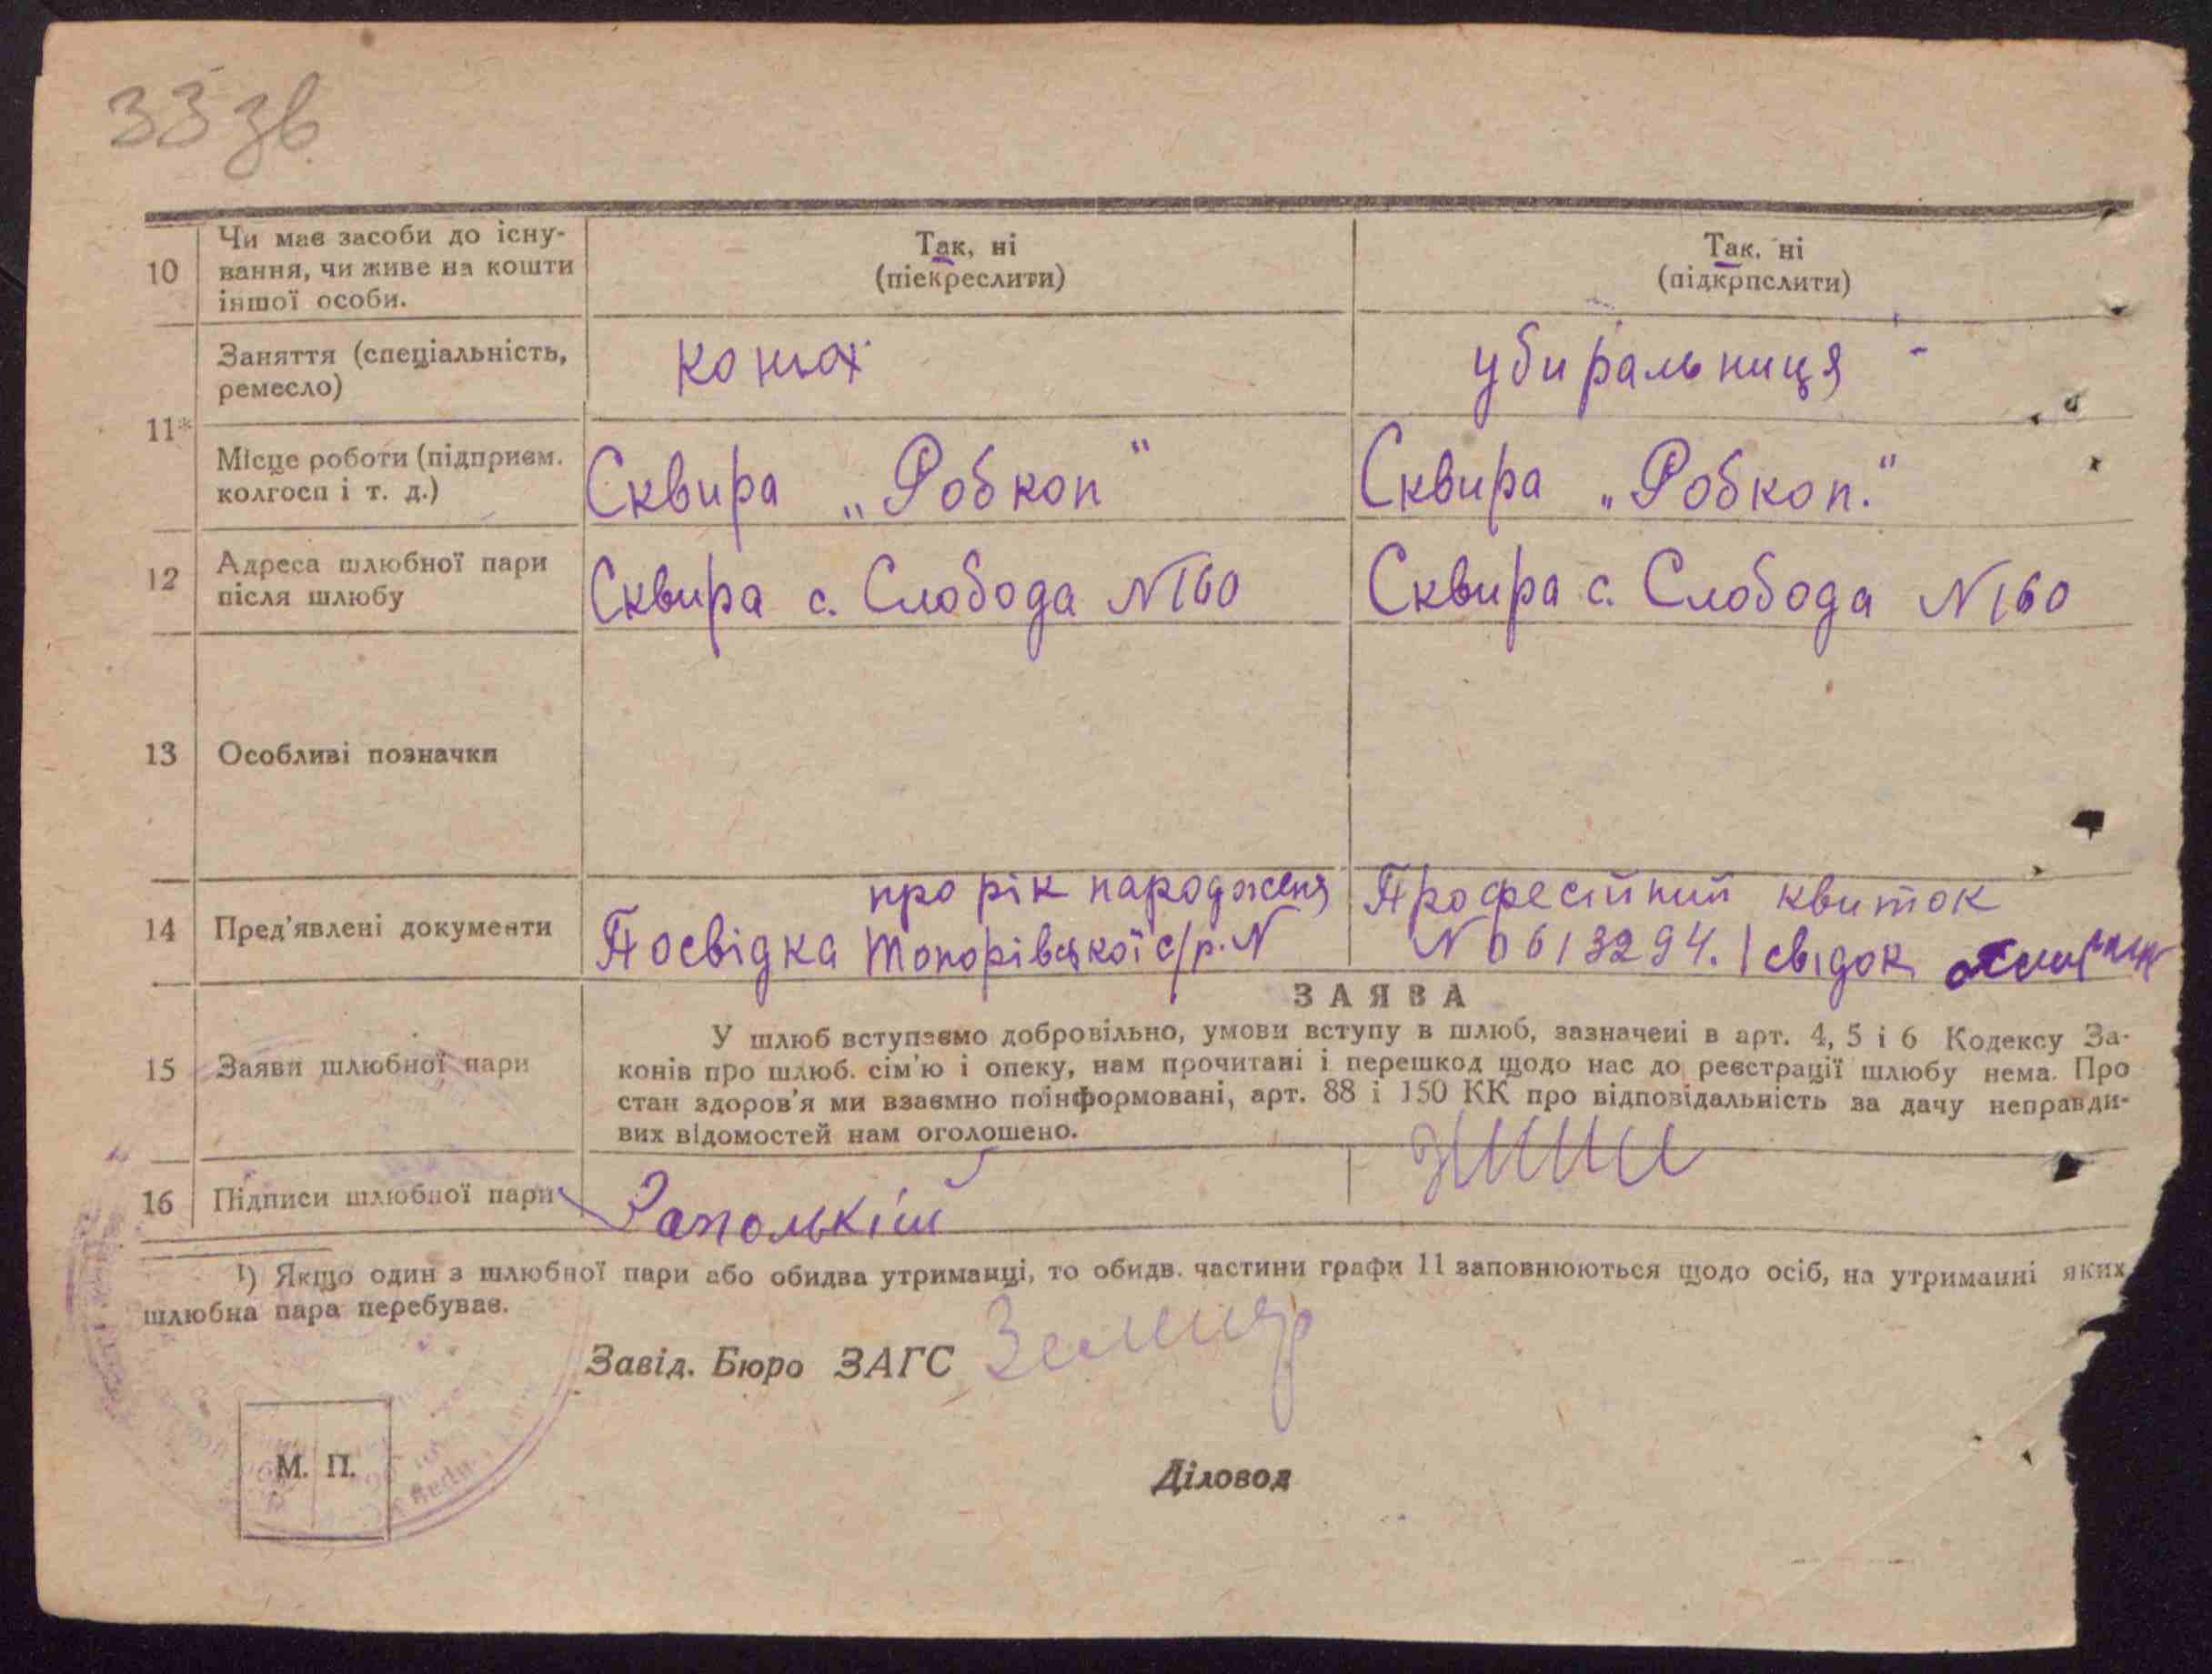 33 зв
10 Чи має засоби до існу-
вання, чи живе на кошти
іншої особи.
Так, ні
(піекреслити)
Так, ні
(підкрпслити)
11* Заняття (спеціальність,
ремесло)
конюх
убиральниця
Місце роботи (підприєм.
колгосп і т. д.)
Сквира „Робкоп"
Сквира „Робкоп."
12 Адреса шлюбної пари
після шлюбу
Сквира с. Слобода N160
Сквира с. Слобода N160
13 Особливі позначки
14 Пред'явлені документи
про рік народженя
Посвідка Топорівської с/р. N
Професійний квиток
N 0613294. І свідок
ЗАЯВА
15 Заяви шлюбної пари
У шлюб вступаємо добровільно, умови вступу в шлюб, зазначені в арт. 4, 5 і 6 Кодексу За-
конів про шлюб. сім'ю і опеку, нам прочитані і перешкод щодо нас до реєстрації шлюбу нема. Про
стан здоров'я ми взаємно поінформовані, арт. 88 і 150 КК про відповідальність за дачу неправди-
вих відомостей нам оголошено.
16 Підписи шлюбної пари
¹) Якщо один з шлюбної пари або обидва утриманці, то обидв. частини графи 11 заповнюються щодо осіб, на утриманні яких
шлюбна пара перебуває.
Завід. Бюро ЗАГС
М. П.
Діловод